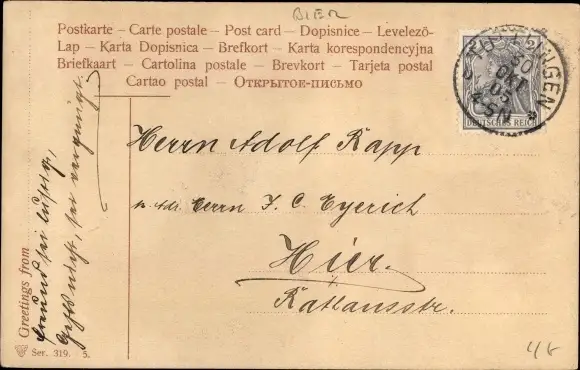 BIER
Postkarte – Carte postale – Post card – Dopisnice – Levelezö-
Lap – Karta Dopisnica – Brefkort – Karta korespondencyjna
Briefkaart – Cartolina postale – Brevkort – Tarjeta postal
Cartao postal – Открытое-письмо
TÜBINGEN
30
OKT
05
DEUTSCHES REICH
Herrn Adolf Rapp
p. Adr. Herrn F. C. Eyerich
Hier.
Greetings from
Freund sei lustig,
Geht's nicht, sei vergnügt.
Ser. 319. 5.